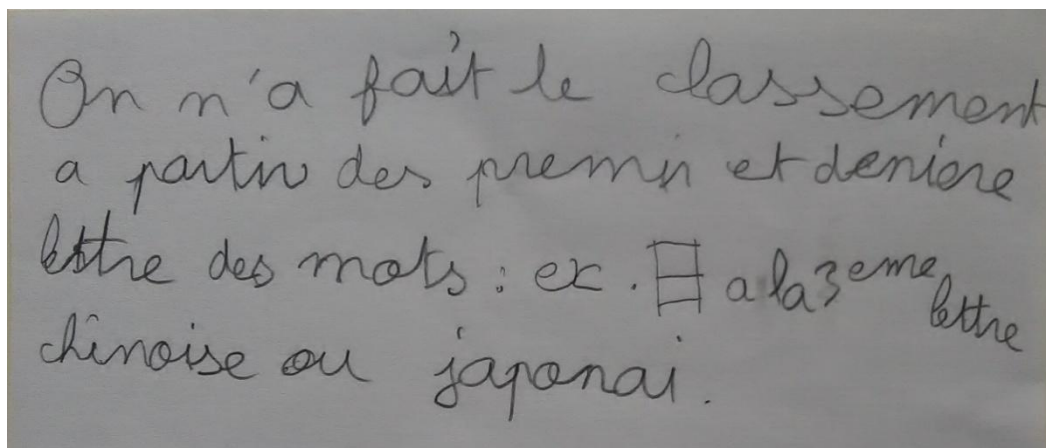 On n'a fait le classement
a partir des premir et derniere
lettre des mots : ex. 日 a la 3eme lettre
chinoise ou japonai.